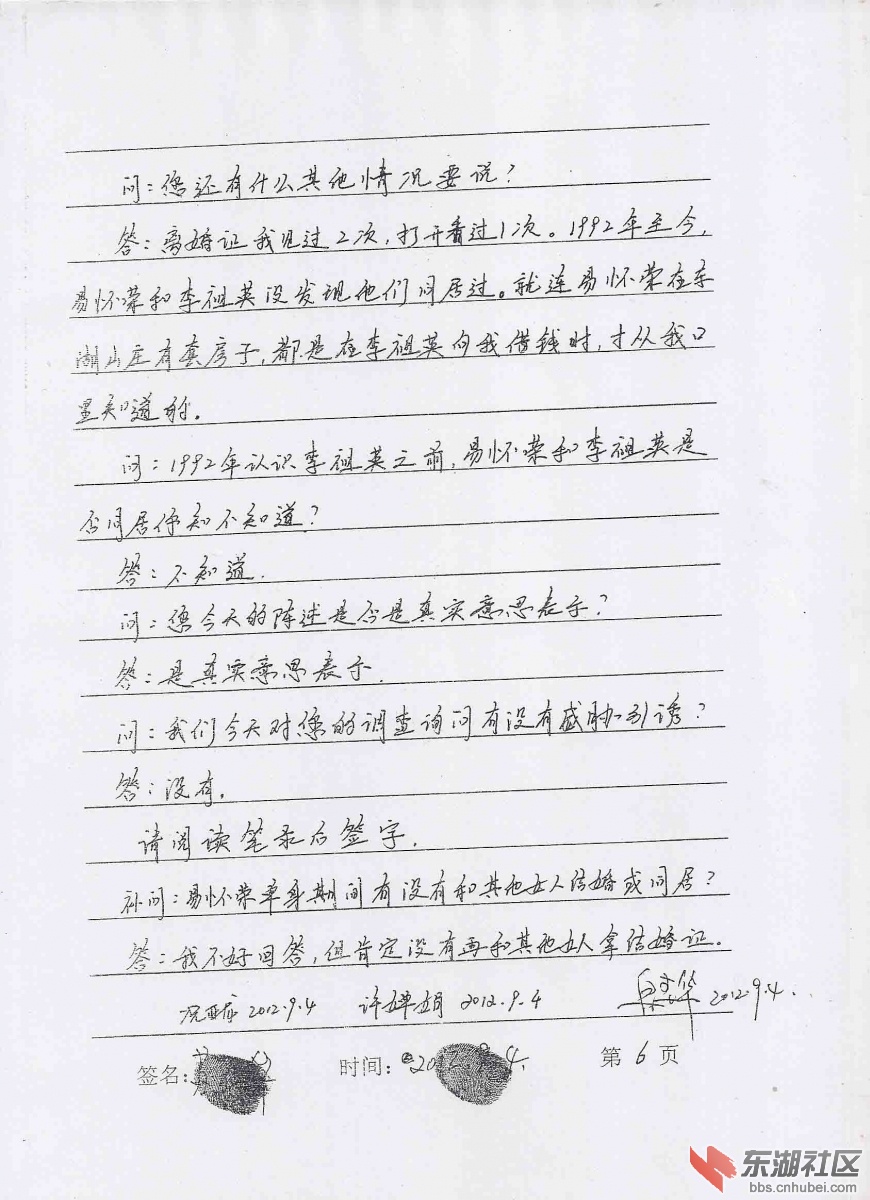 问：您还有什么其他情况要说？
答：离婚证我见过2次，打开看过1次。1992年至今，
易怀荣和李祖英没发现他们同居过。就连易怀荣在东
湖山庄有套房子，都是在李祖英向我借钱时，才从我口
里知道的。
问：1992年认识李祖英之前，易怀荣和李祖英是
否同居你知不知道？
答：不知道.
问：您今天的陈述是否是真实意思表示？
答：是真实意思表示.
问：我们今天对您的调查询问有没有威胁引诱？
答：没有.
请阅读笔录后签字.
补问：易怀荣单身期间有没有和其他女人结婚或同居？
答：我不好回答，但肯定没有再和其他女人拿结婚证.
2012.9.4 许婵娟 2012.9.4 2012.9.4.
签名： 时间：2012.9.4. 第6页
东湖社区
bbs.cnhubei.com